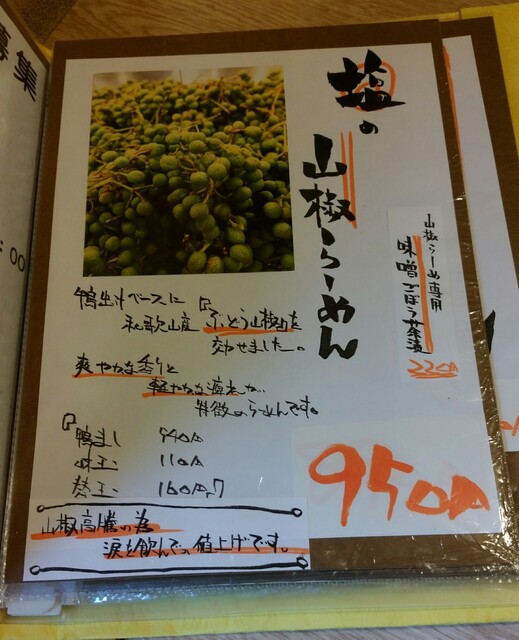 募集
00
塩の
山椒らーめん
山椒らーめん専用
味噌ごぼう茶漬
220円
鴨出汁ベースに
和歌山産『ぶどう山椒』を
効かせました。
爽やかな香りと
軽やかな痺れが
特徴のらーめんです。
鴨まし 940円
味玉 110円
替玉 160円
950円
山椒高騰の為
涙を飲んでの値上げです。